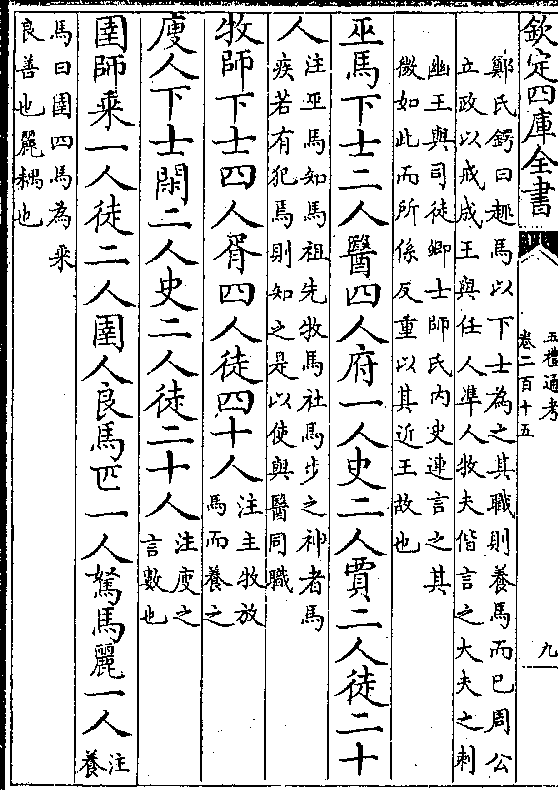 欽定四庫全書
五禮通考
卷二百十五
九
鄭氏鍔曰趣馬以下士為之其職則養馬而已周公
立政以戒成王與任人準人牧夫偕言之大夫之刺
幽王與司徒卿士師氏内史連言之其
微如此而所係反重以其近王故也
巫馬下士二人醫四人府一人史二人賈二人徒二十
人
注巫馬知馬祖先牧馬社馬步之神者馬
疾若有犯焉則知之是以使與醫同職
牧師下士四人胥四人徒四十人
注主牧放
馬而養之
廋人下士閑二人史二人徒二十人
注廋之
言數也
圉師乗一人徒二人圉人良馬匹一人駑馬麗一人
注
養
馬曰圉四馬為乗
良善也麗耦也